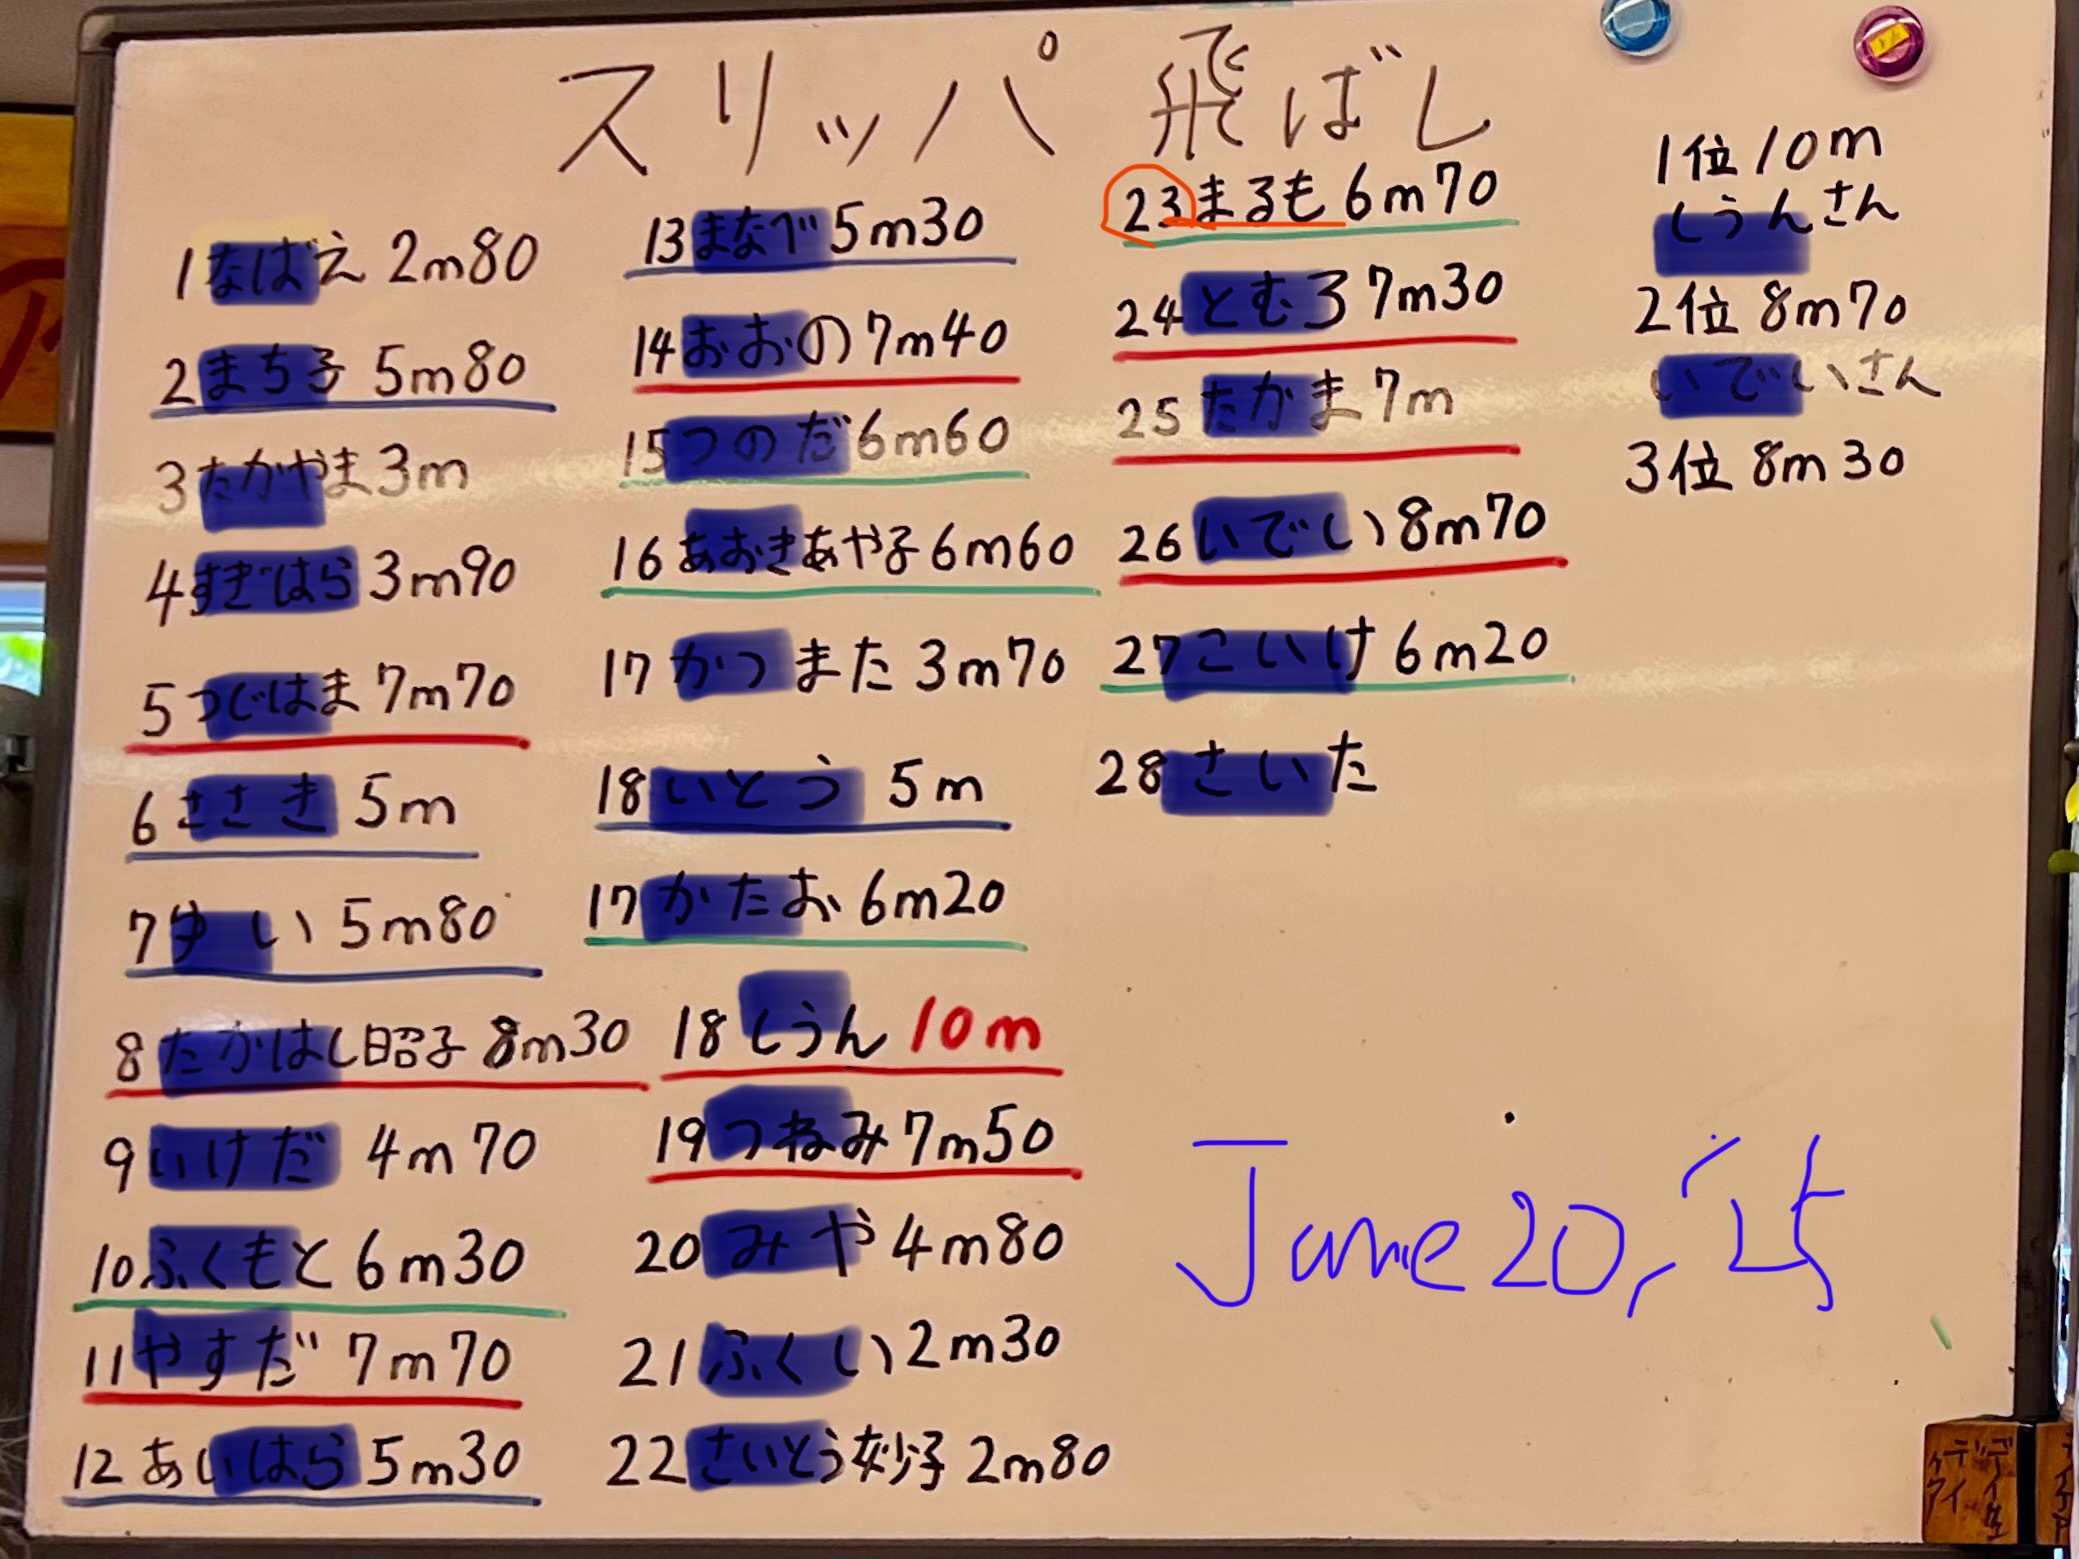 スリッパ 飛ばし
1 なばえ 2m80
2 まち子 5m80
3 たかやま 3m
4 すぎはら 3m90
5 つじはま 7m70
6 ささき 5m
7 ゆい 5m80
8 たかはし昭子 8m30
9 いけだ 4m70
10 ふくもと 6m30
11 やすだ 7m70
12 あいはら 5m30
13 まなべ 5m30
14 おおの 7m40
15 つのだ 6m60
16 あおきあや子 6m60
17 かつまた 3m70
18 いとう 5m
17 かたお 6m20
18 しうん 10m
19 つねみ 7m50
20 みや 4m80
21 ふくい 2m30
22 さいとう妙子 2m80
23 まるも 6m70
24 ともろ 7m30
25 たかま 7m
26 いでい 8m70
27 こいけ 6m20
28 さいた
1位 10m
しうんさん
2位 8m70
いでいさん
3位 8m30
June 20, '25